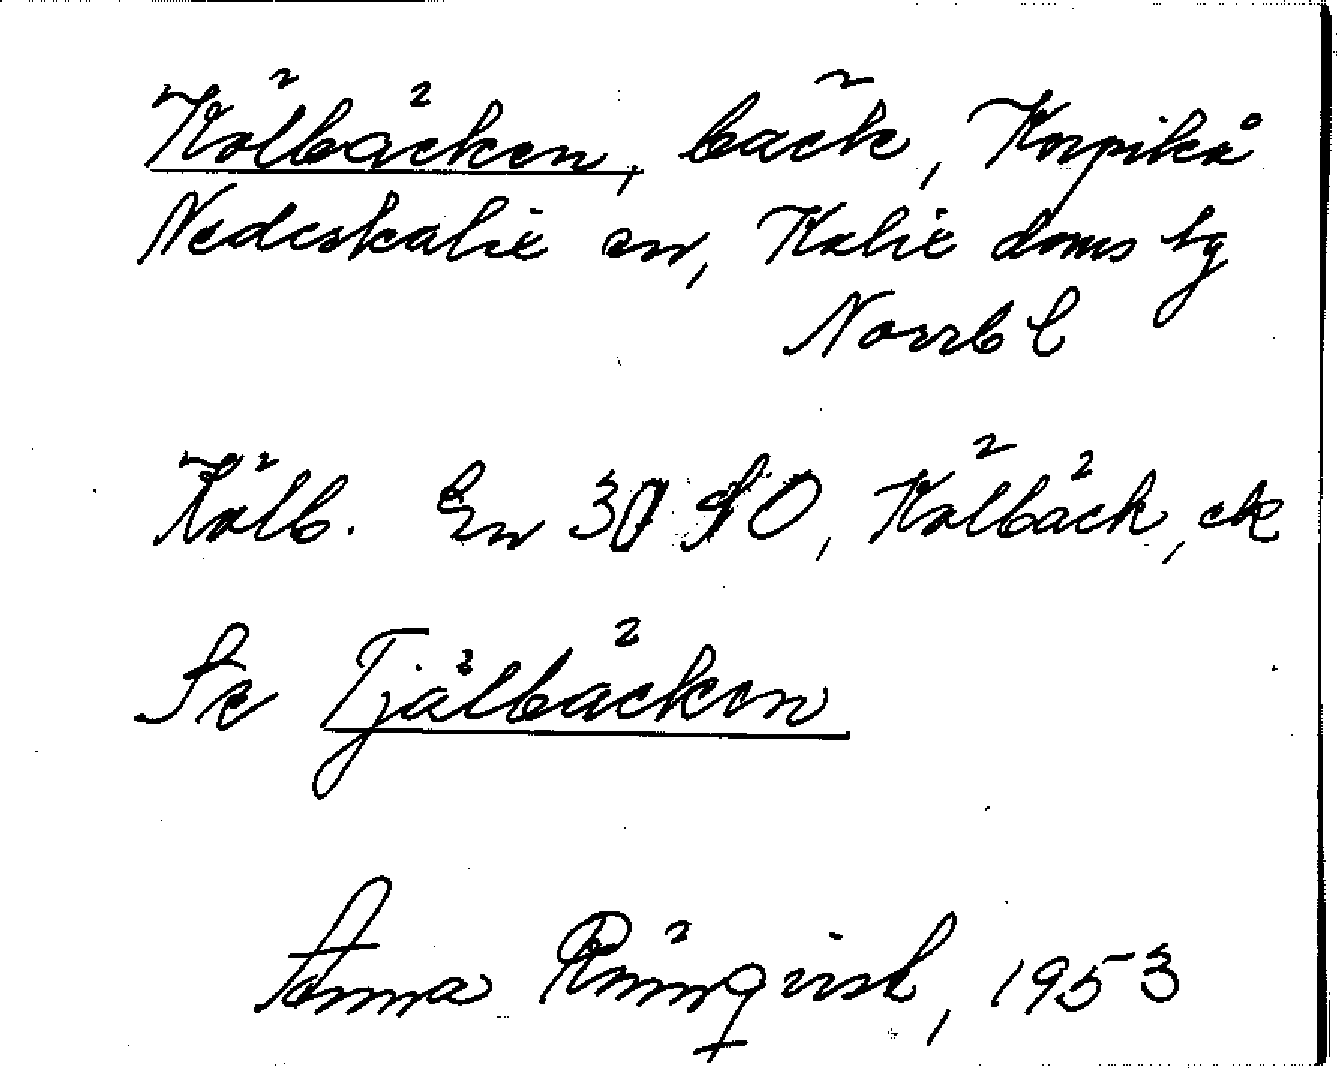 Kölbäcken, bäck, Korpikå
Nederkalix sn, Kalix doms tg
Norrb l
Kölb. En 30 SO, Kölbäck, ek
Se Tjälbäcken
Anna Rönqvist, 1953